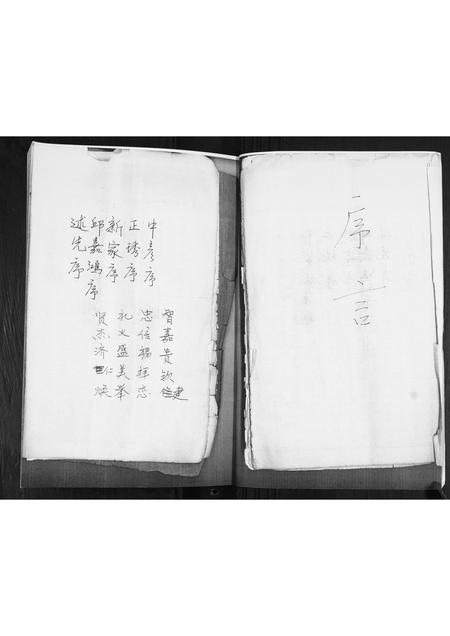 序言
中彦序
正琇序
新家序
邱嘉鸿序
述先序
智嘉贵钦建
忠信福挥志
礼义盛美举
贤杰济仁焕